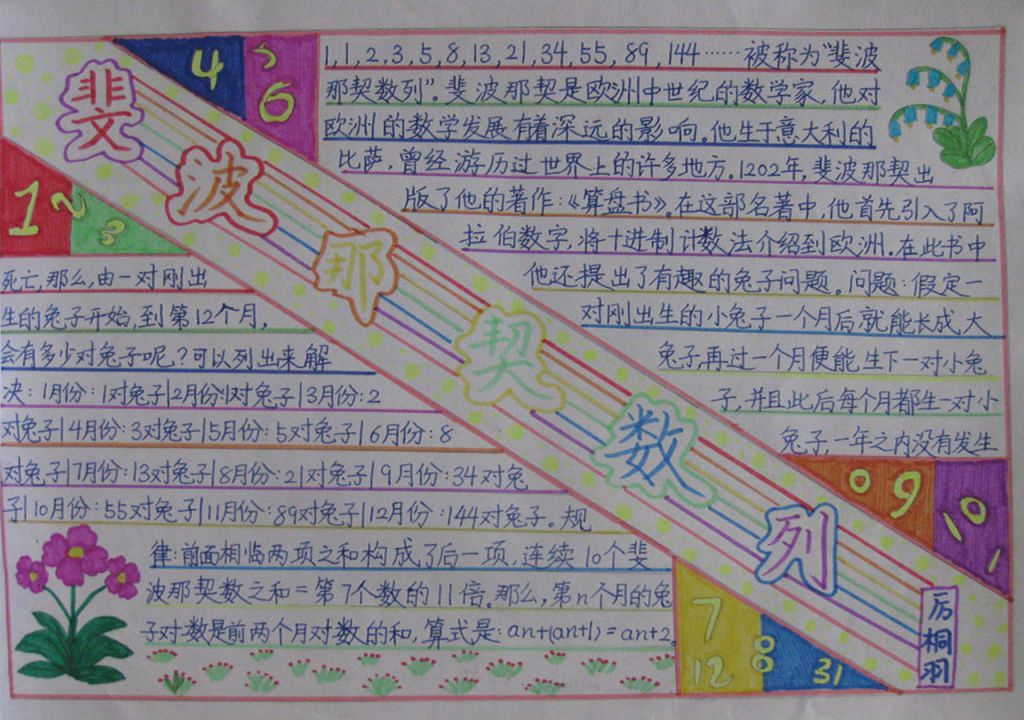 斐波那契数列
4
5
6
1
2
3
1,1,2,3,5,8,13,21,34,55,89,144……被称为“斐波
那契数列”。斐波那契是欧洲中世纪的数学家,他对
欧洲的数学发展有着深远的影响。他生于意大利的
比萨,曾经游历过世界上的许多地方。1202年,斐波那契出
版了他的著作:《算盘书》。在这部名著中,他首先引入了阿
拉伯数字,将十进制计数法介绍到欧洲。在此书中
他还提出了有趣的兔子问题。问题:假定一
对刚出生的小兔子一个月后就能长成大
兔子,再过一个月便能生下一对小兔
子,并且此后每个月都生一对小
兔子,一年之内没有发生
死亡,那么,由一对刚出
生的兔子开始,到第12个月,
会有多少对兔子呢?可以列出来解
决:1月份:1对兔子|2月份:1对兔子|3月份:2
对兔子|4月份:3对兔子|5月份:5对兔子|6月份:8
对兔子|7月份:13对兔子|8月份:21对兔子|9月份:34对兔
子|10月份:55对兔子|11月份:89对兔子|12月份:144对兔子。规
律:前面相临两项之和构成了后一项,连续10个斐
波那契数之和=第7个数的11倍。那么,第n个月的兔
子对数是前两个月对数的和,算式是:an+(an+1)=an+2。
0
9
10
1
7
8
12
31
厉桐羽